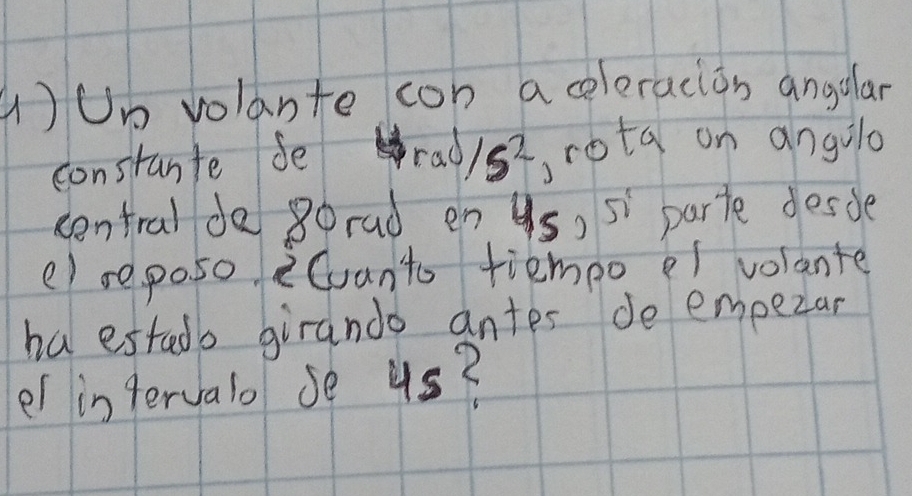 4) Un volante con aceleración angular
constante de 4rad/s², rota un angulo
central de 80rad en 4s, si parte desde
el reposo. ¿Cuanto tiempo el volante
ha estado girando antes de empezar
el intervalo de 4s?